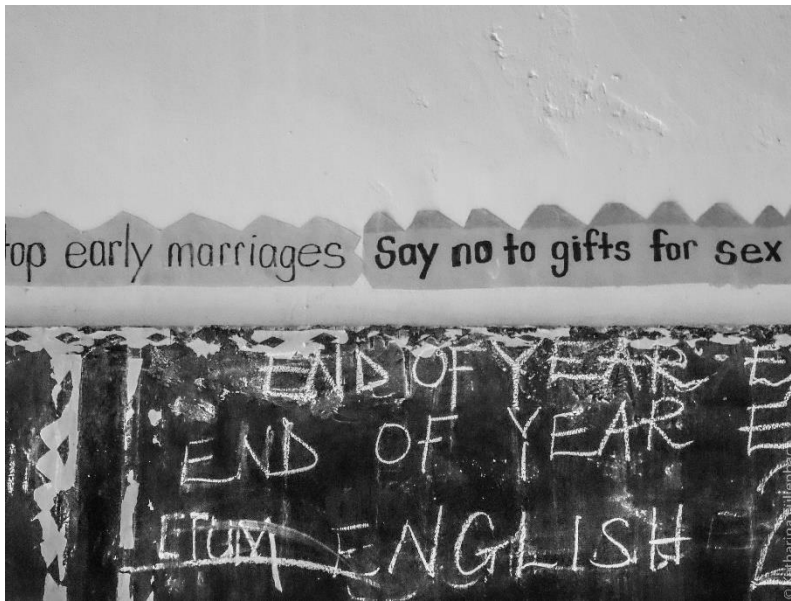 top early marriages
Say no to gifts for sex
END OF YEAR E
END OF YEAR E
ENGLISH